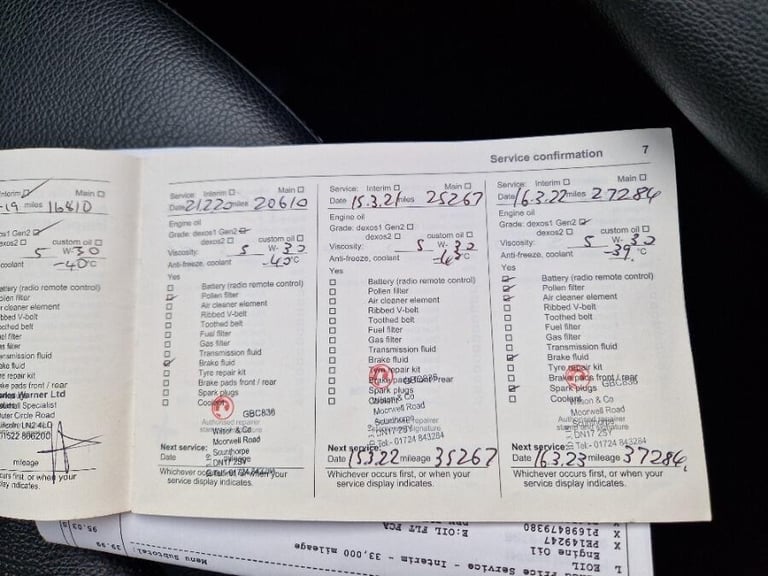 Service confirmation 7
Interim Main
-19 miles 16810
dexos1 Gen2
dexos2 custom oil
5 W-30
coolant -40 °C
Battery (radio remote control)
pollen filter
air cleaner element
Ribbed V-belt
Toothed belt
fuel filter
Gas filter
Transmission fluid
Brake fluid
Tyre repair kit
Brake pads front / rear
Warner Ltd
Specialist
Outer Circle Road
Lincoln LN2 4LD
01522 806200
mileage
Whichever occurs first, or when your
display indicates.
Service: Interim Main
Date 21220 miles 20610
Engine oil
Grade: dexos1 Gen2
dexos2 custom oil
Viscosity: 5 W-30
Anti-freeze, coolant -40 °C
Yes
Battery (radio remote control)
Pollen filter
Air cleaner element
Ribbed V-belt
Toothed belt
Fuel filter
Gas filter
Transmission fluid
Brake fluid
Tyre repair kit
Brake pads front / rear
Spark plugs
Coolant
GBC836
Authorised repairer
Wilson & Co
Moorwell Road
Scunthorpe
DN17 2SY
Tel:- 01724 843284
Next service:
Date mileage
Whichever occurs first, or when your
service display indicates.
Service: Interim Main
Date 15.3.21 miles 25267
Engine oil
Grade: dexos1 Gen2
dexos2 custom oil
Viscosity: 5 W-30
Anti-freeze, coolant °C
Yes
Battery (radio remote control)
Pollen filter
Air cleaner element
Ribbed V-belt
Toothed belt
Fuel filter
Gas filter
Transmission fluid
Brake fluid
Tyre repair kit
Brake pads front / rear
GBC836
Spark plugs
Coolant
Wilson & Co
Moorwell Road
Scunthorpe
DN17 2SY
Tel:- 01724 843284
Next service:
Date 15.3.22 mileage 35267
Whichever occurs first, or when your
service display indicates.
Service: Interim Main
Date 16.3.22 miles 27284
Engine oil
Grade: dexos1 Gen2
dexos2 custom oil
Viscosity: 5 W-30
Anti-freeze, coolant -39 °C
Yes
Battery (radio remote control)
Pollen filter
Air cleaner element
Ribbed V-belt
Toothed belt
Fuel filter
Gas filter
Transmission fluid
Brake fluid
Tyre repair kit
Brake pads front / rear
Spark plugs GBC836
Coolant
Wilson & Co
Moorwell Road
Scunthorpe
DN17 2SY
Tel:- 01724 843284
Next service:
Date 16.3.23 mileage 37284
Whichever occurs first, or when your
service display indicates.
Price Service - Interim - 33,000 mileage
Menu Subtotal: 39.99
L EOIL Engine Oil
X PE149247
X P1698479380 E:OIL FLT FCA
95.03